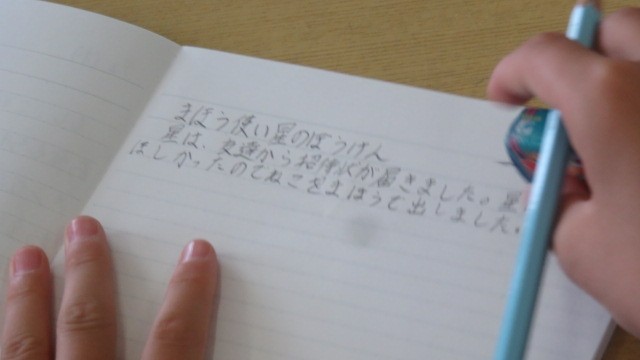 まほう使い星のぼうけん
星は、友達から招待状が届きました。星
ほしかったのでねこをまほうで出しました。